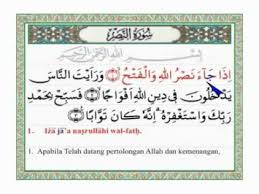 سُورَةُ النَّصْرِ
بِسْمِ اللَّهِ الرَّحْمَٰنِ الرَّحِيمِ
إِذَا جَآءَ نَصْرُ اللَّهِ وَالْفَتْحُ ۝ وَرَأَيْتَ النَّاسَ
يَدْخُلُونَ فِي دِينِ اللَّهِ أَفْوَاجًا ۝ فَسَبِّحْ بِحَمْدِ
رَبِّكَ وَاسْتَغْفِرْهُ ۚ إِنَّهُ كَانَ تَوَّابًا ۝
1. Iżā jā'a naṣrullāhi wal-fatḥ.
1. Apabila Telah datang pertolongan Allah dan kemenangan,